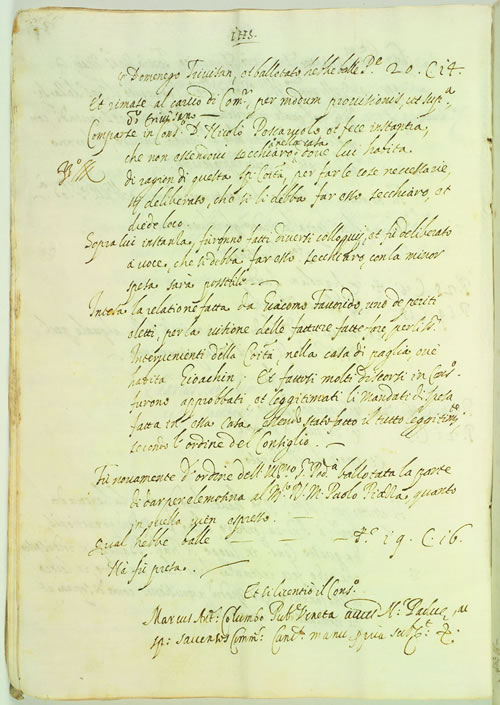 1115.
Domenego Trivisan, et ballotato hebbe balle P.e 20. C 14.
Et rimase al carico di Com.r, per modum provisionis, ut sup.a
Comparse in Cons.o D. Nicolò et fece instantia,
che non essendovi secchiaro nella casa dove lui habita
di raggion di questa sp. Co.ità, per far le cose necessarie,
deliberato, che si li debba far esso secchiaro, et
diede loco
Sopra lui instanza, furonno fatti diversi colloquij, et fù deliberato
à voce, che si debba far esso secchiaro, con la minor
spesa sarà possibile.
Intesa la relatione fatta da Giacomo Favorido, uno de periti
eletti, per la visione delle fatture fatte fare per li
Intervenienti della Co.ità, nella casa di paglia, ove
habita Gioachin; Et fattosi molti discorsi in Cons.o
furono approbati, et leggitimati li mandati di spesa
fatta in essa casa, essendo stato fatto il tutto leggitim.te
secondo l'ordine del Consiglio.
Fù novamente d'ordine dell' Ill.mo S.r Pod.a ballotata la parte
di dar per elemosina al Paolo quanto
in quella vien espresso.
qual hebbe balle P.e 19. C 16.
Hà fù presa.
Et si licentiò il Cons.o
Marcus Ant. Columbo Pub.s Veneta auct.
manu propria